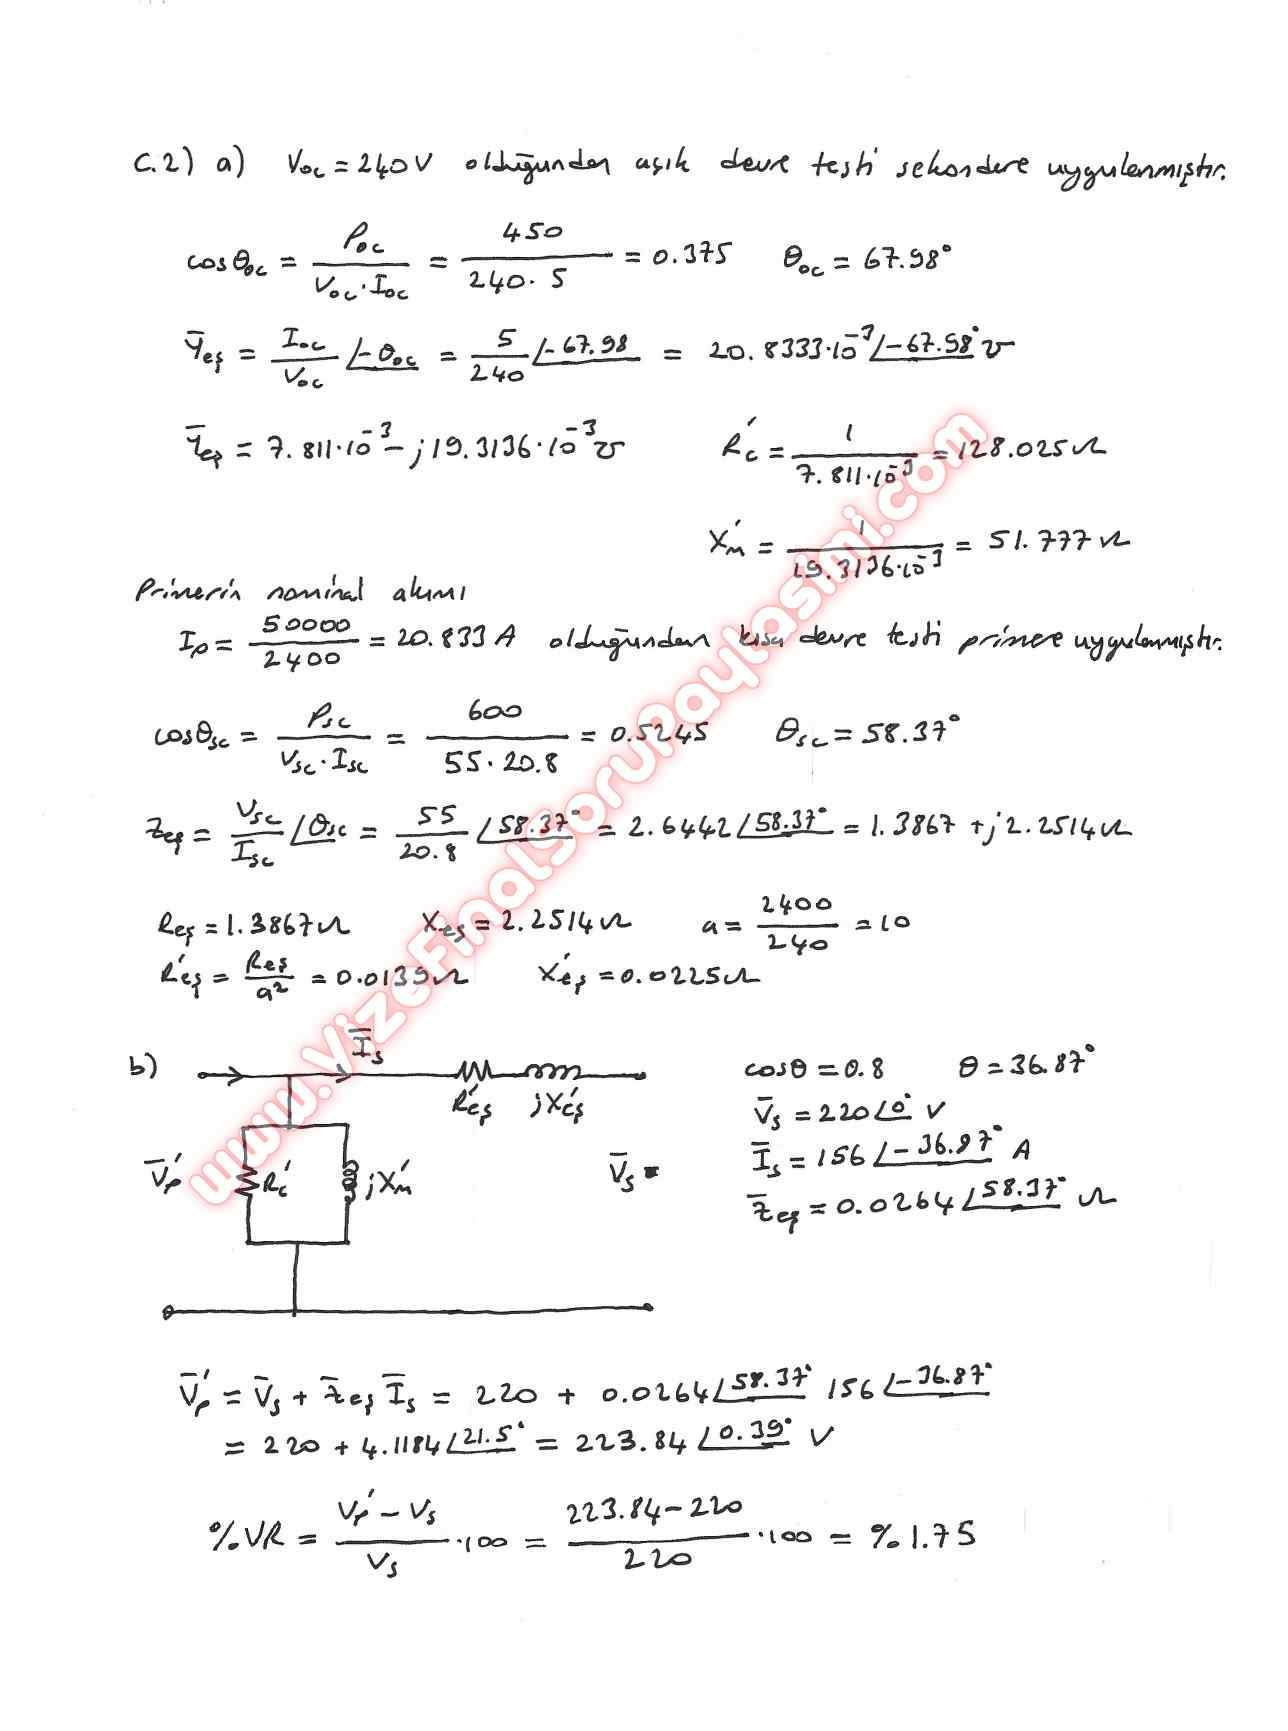 C.2) a) Voc = 240V olduğundan açık devre testi sekondere uygulanmıştır.
cosθoc = Poc / (Voc·Ioc) = 450 / (240·5) = 0.375 θoc = 67.98°
Ȳeş = Ioc/Voc ∠-θoc = 5/240 ∠-67.98 = 20.8333·10⁻³ ∠-67.98° ℧
Ȳeş = 7.811·10⁻³ - j19.3136·10⁻³ ℧ Rc' = 1 / (7.811·10⁻³) = 128.025Ω
Xm' = 1 / (19.3136·10⁻³) = 51.777Ω
Primerin nominal akımı
Ip = 50000/2400 = 20.833 A olduğundan kısa devre testi primere uygulanmıştır.
cosθsc = Psc / (Vsc·Isc) = 600 / (55·20.8) = 0.5245 θsc = 58.37°
Zeş = Vsc/Isc ∠θsc = 55/20.8 ∠58.37° = 2.6442 ∠58.37° = 1.3867 + j2.2514Ω
Reş = 1.3867Ω Xeş = 2.2514Ω a = 2400/240 = 10
Reş' = Reş/a² = 0.0139Ω Xeş' = 0.0225Ω
b) Īs cosθ = 0.8 θ = 36.87°
Reş' jXeş' V̄s = 220∠0° V
V̄p' Rc' jXm' V̄s Īs = 156 ∠-36.87° A
Z̄eş = 0.0264 ∠58.37° Ω
V̄p' = V̄s + Z̄eş Īs = 220 + 0.0264 ∠58.37° 156 ∠-36.87°
= 220 + 4.1184 ∠21.5° = 223.84 ∠0.39° V
%VR = (Vp' - Vs) / Vs ·100 = (223.84 - 220) / 220 ·100 = %1.75
www.VizeFinalSoruPaylasimi.com